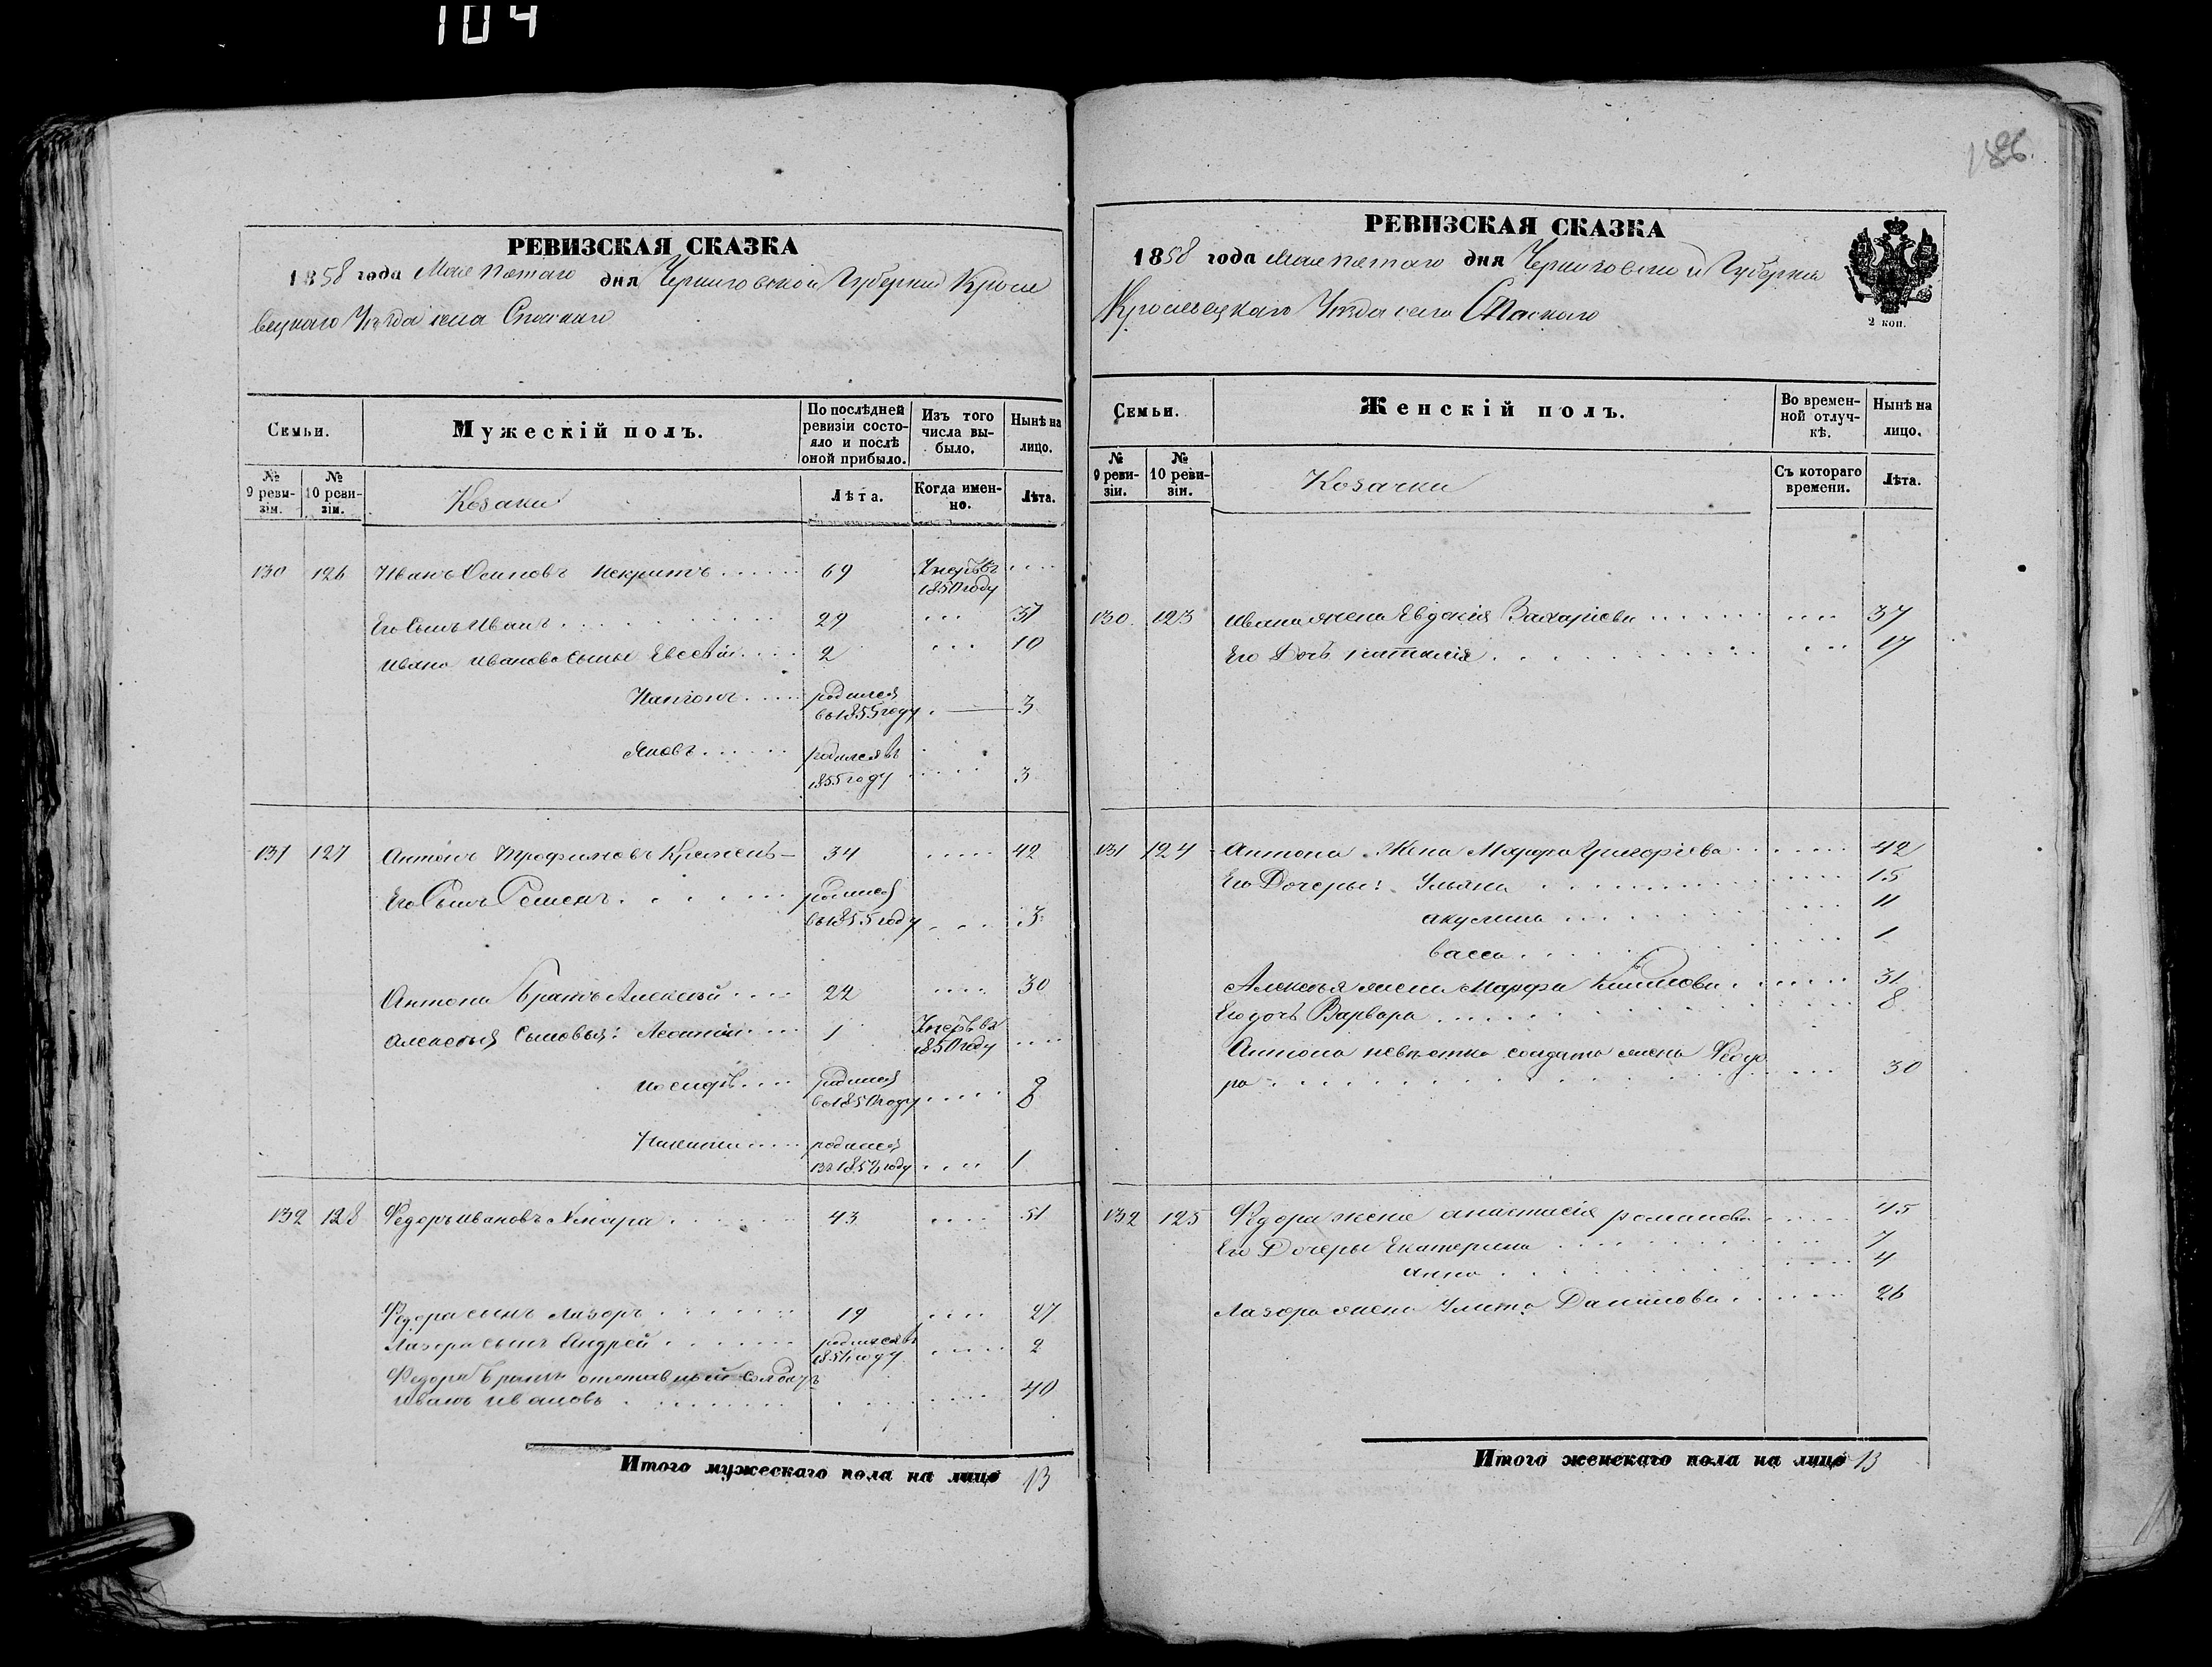 104
РЕВИЗСКАЯ СКАЗКА
1858 года Мая пятаго дня Черниговской Губернии Кроле
вецкаго Уѣзда села Спаскаго
Семьи.
Мужескій полъ.
По послѣдней ревизіи состояло и послѣ оной прибыло.
Изъ того числа выбыло.
Нынѣ на лицо.
№ 9 ревизіи.
№ 10 ревизіи.
Козаки
Лѣта.
Когда именно.
Лѣта.
130 126 Иванъ Осиповъ 69 Умеръ въ
1850 году
Его Сынъ Иванъ 29 37
Ивана Иванова Сыны Евсѣй 2 10
родился
въ 1855 году 3
Яковъ родился въ
1855 году 3
131 127 Антонъ Трофимовъ 34 42
Его Сынъ Семенъ родился
въ 1855 году 3
Антона Братъ Алексѣй 22 30
Алексѣя Сыновья: 1 Умеръ въ
1850 году
Иосифъ родился
въ 1850 году 8
Никита родился
въ 1857 году 1
132 128 Федоръ Ивановъ 43 51
Федора сынъ Лазоръ 19 27
Лазора сынъ Андрей родился въ
году 2
Федора Братъ отставный солдатъ
Иванъ Ивановъ 40
Итого мужескаго пола на лицо 13
186.
РЕВИЗСКАЯ СКАЗКА
1858 года Мая пятаго дня Черниговской Губерніи
Кролевецкаго Уѣзда села Спаскаго
2 коп.
Семьи.
Женскій полъ.
Во временной отлучкѣ.
Нынѣ на лицо.
№ 9 ревизіи.
№ 10 ревизіи.
Козачки
Съ котораго времени.
Лѣта.
130 123 Ивана жена Евдокія Захаріева 37
Его Дочь Наталія 17
131 124 Антона Жена Марфа Григоріева 42
Его Дочеры: Ульяна 15
Акулина 11
Васса 1
Алексѣя жена Марфа 31
Его дочь Варвара 8
Антона невѣстка солдата жена Ѳеодо
ра 30
132 125 Федора жена Анастасія Романова 45
Его Дочеры Екатерина 7
Анна 4
Лазора жена Улита Данилова 26
Итого женскаго пола на лицо 13